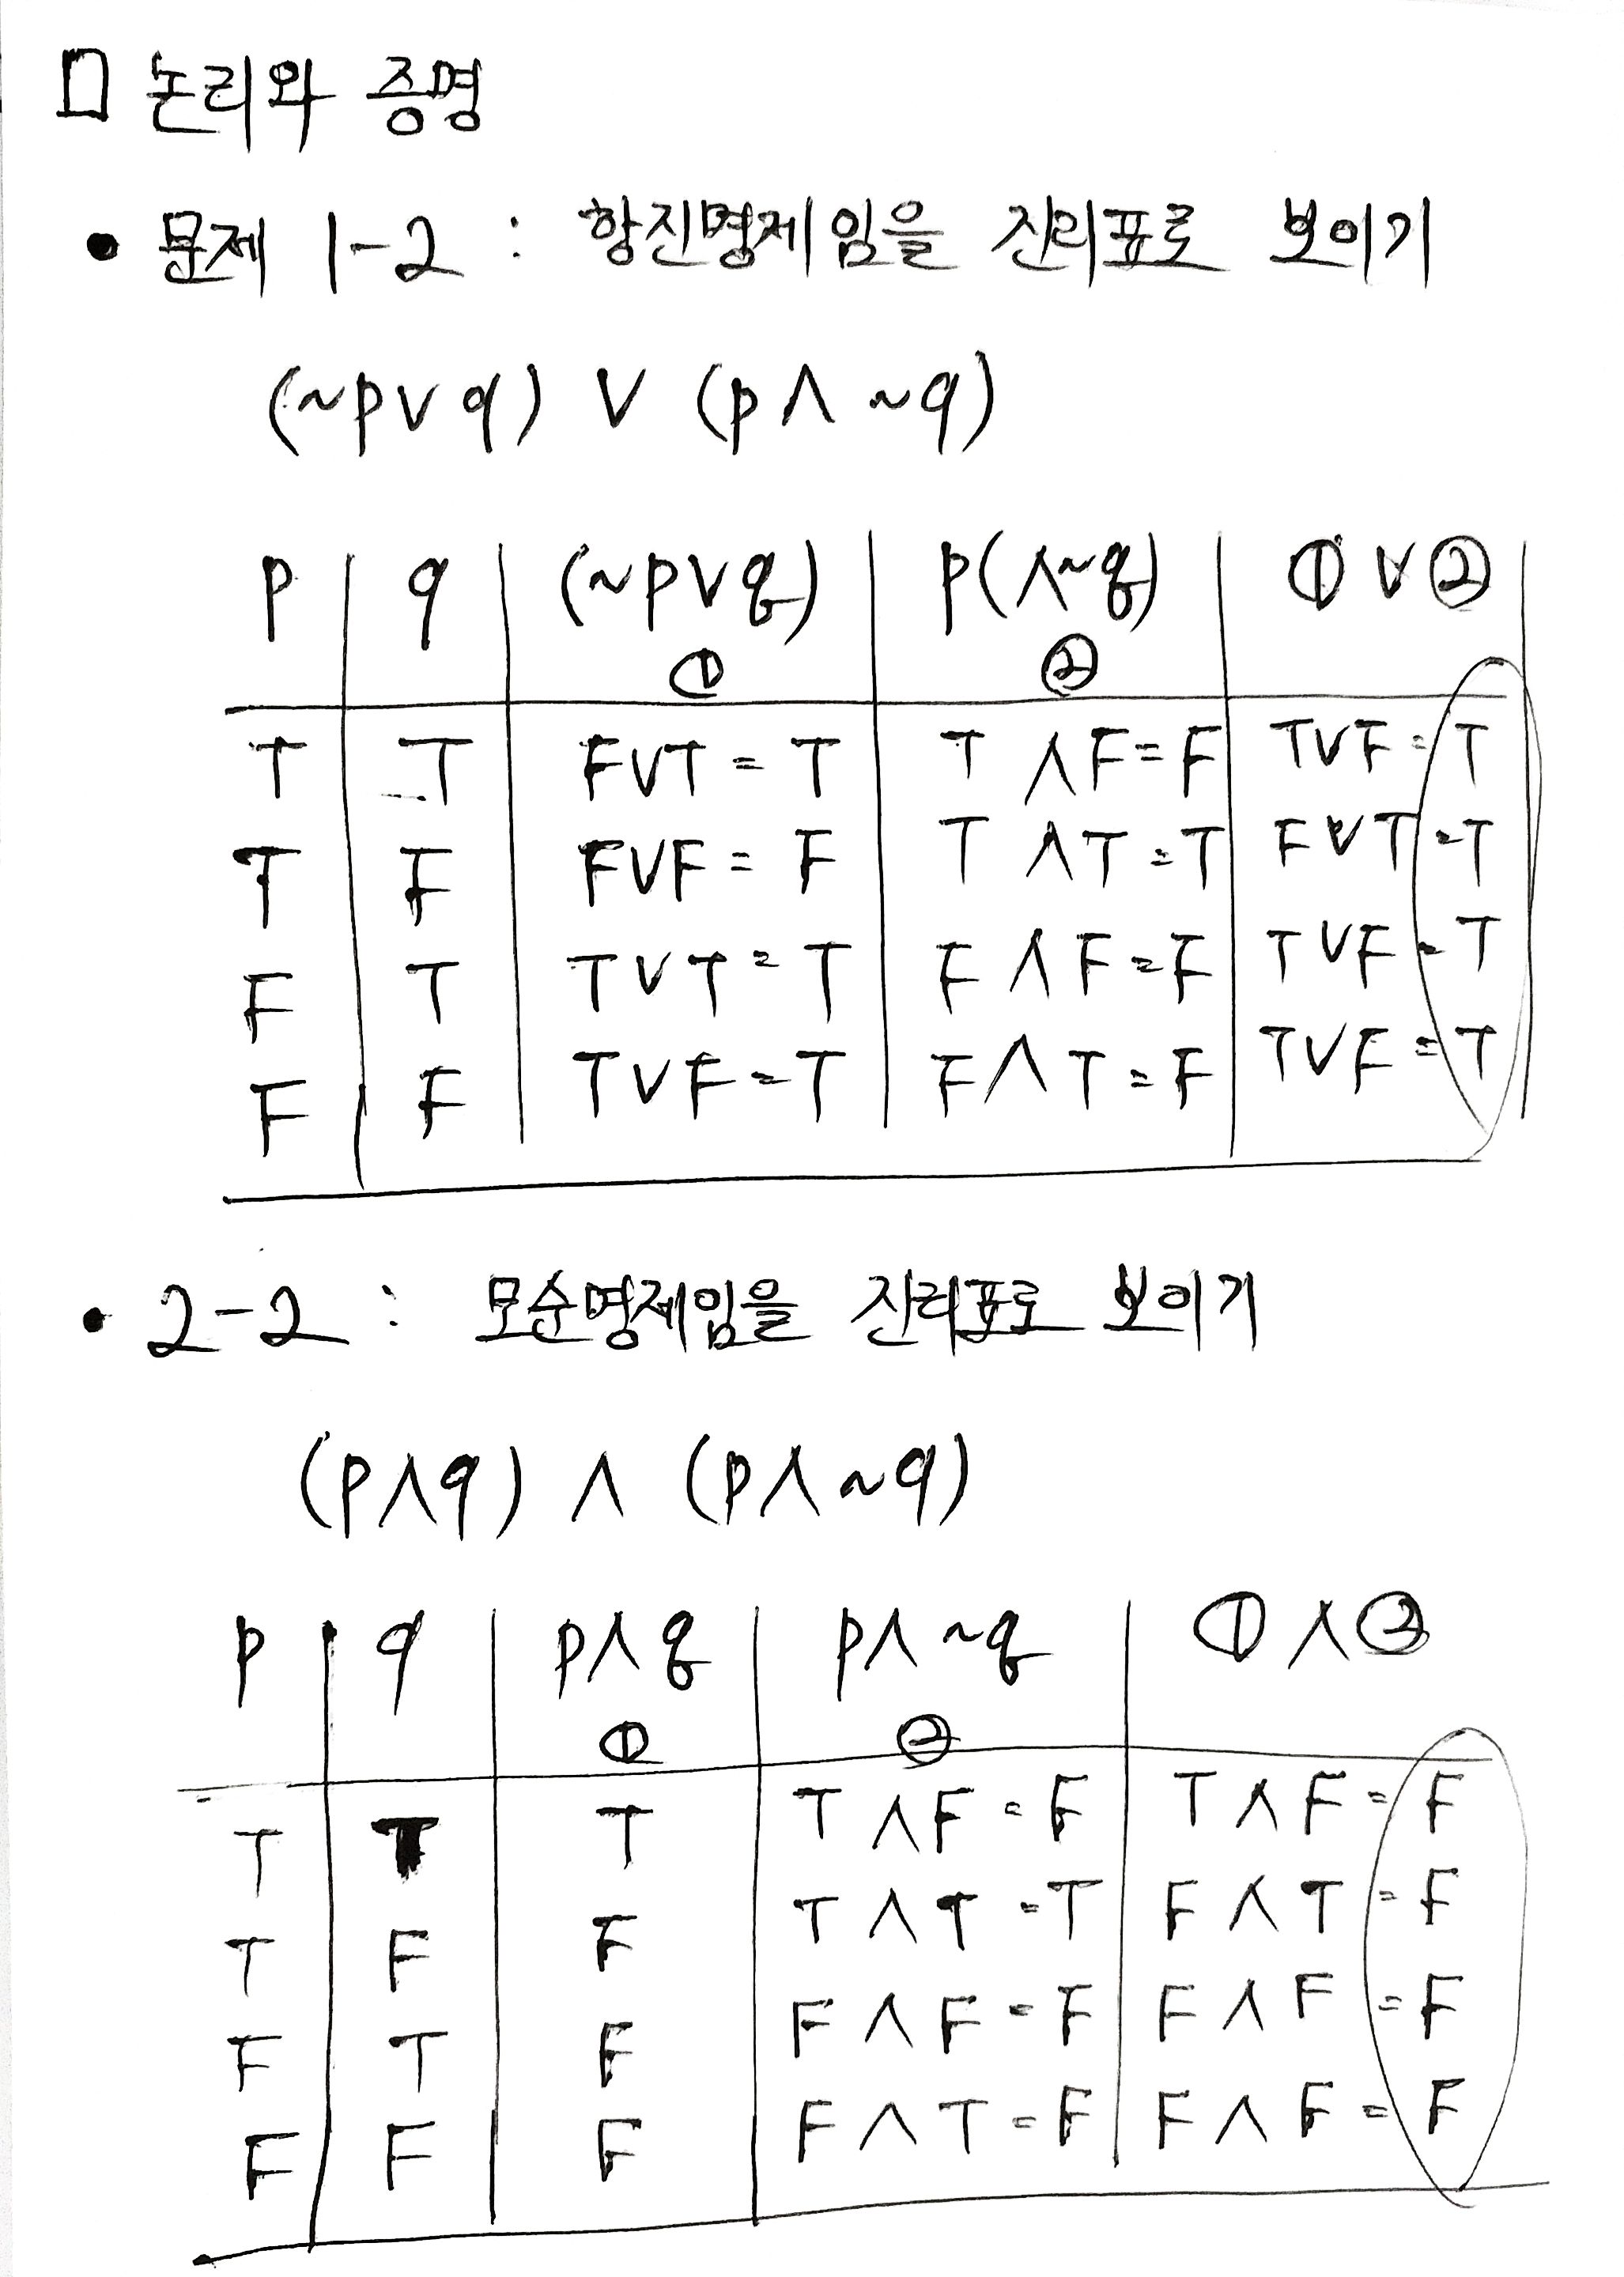 □ 논리와 증명
• 문제 1-2 : 항진명제임을 진리표로 보이기
(~p∨q) ∨ (p∧~q)
p q (~p∨q) p(∧~q) ①∨②
① ②
T T F∨T=T T∧F=F T∨F=T
T F F∨F=F T∧T=T F∨T=T
F T T∨T=T F∧F=F T∨F=T
F F T∨F=T F∧T=F T∨F=T
• 2-2 : 모순명제임을 진리표로 보이기
(p∧q) ∧ (p∧~q)
p q p∧q p∧~q ①∧②
① ②
T T T T∧F=F T∧F=F
T F F T∧T=T F∧T=F
F T F F∧F=F F∧F=F
F F F F∧T=F F∧F=F